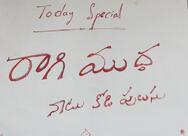 Today Special
రాగి ముద్ద
నాటు కోడి పులుసు